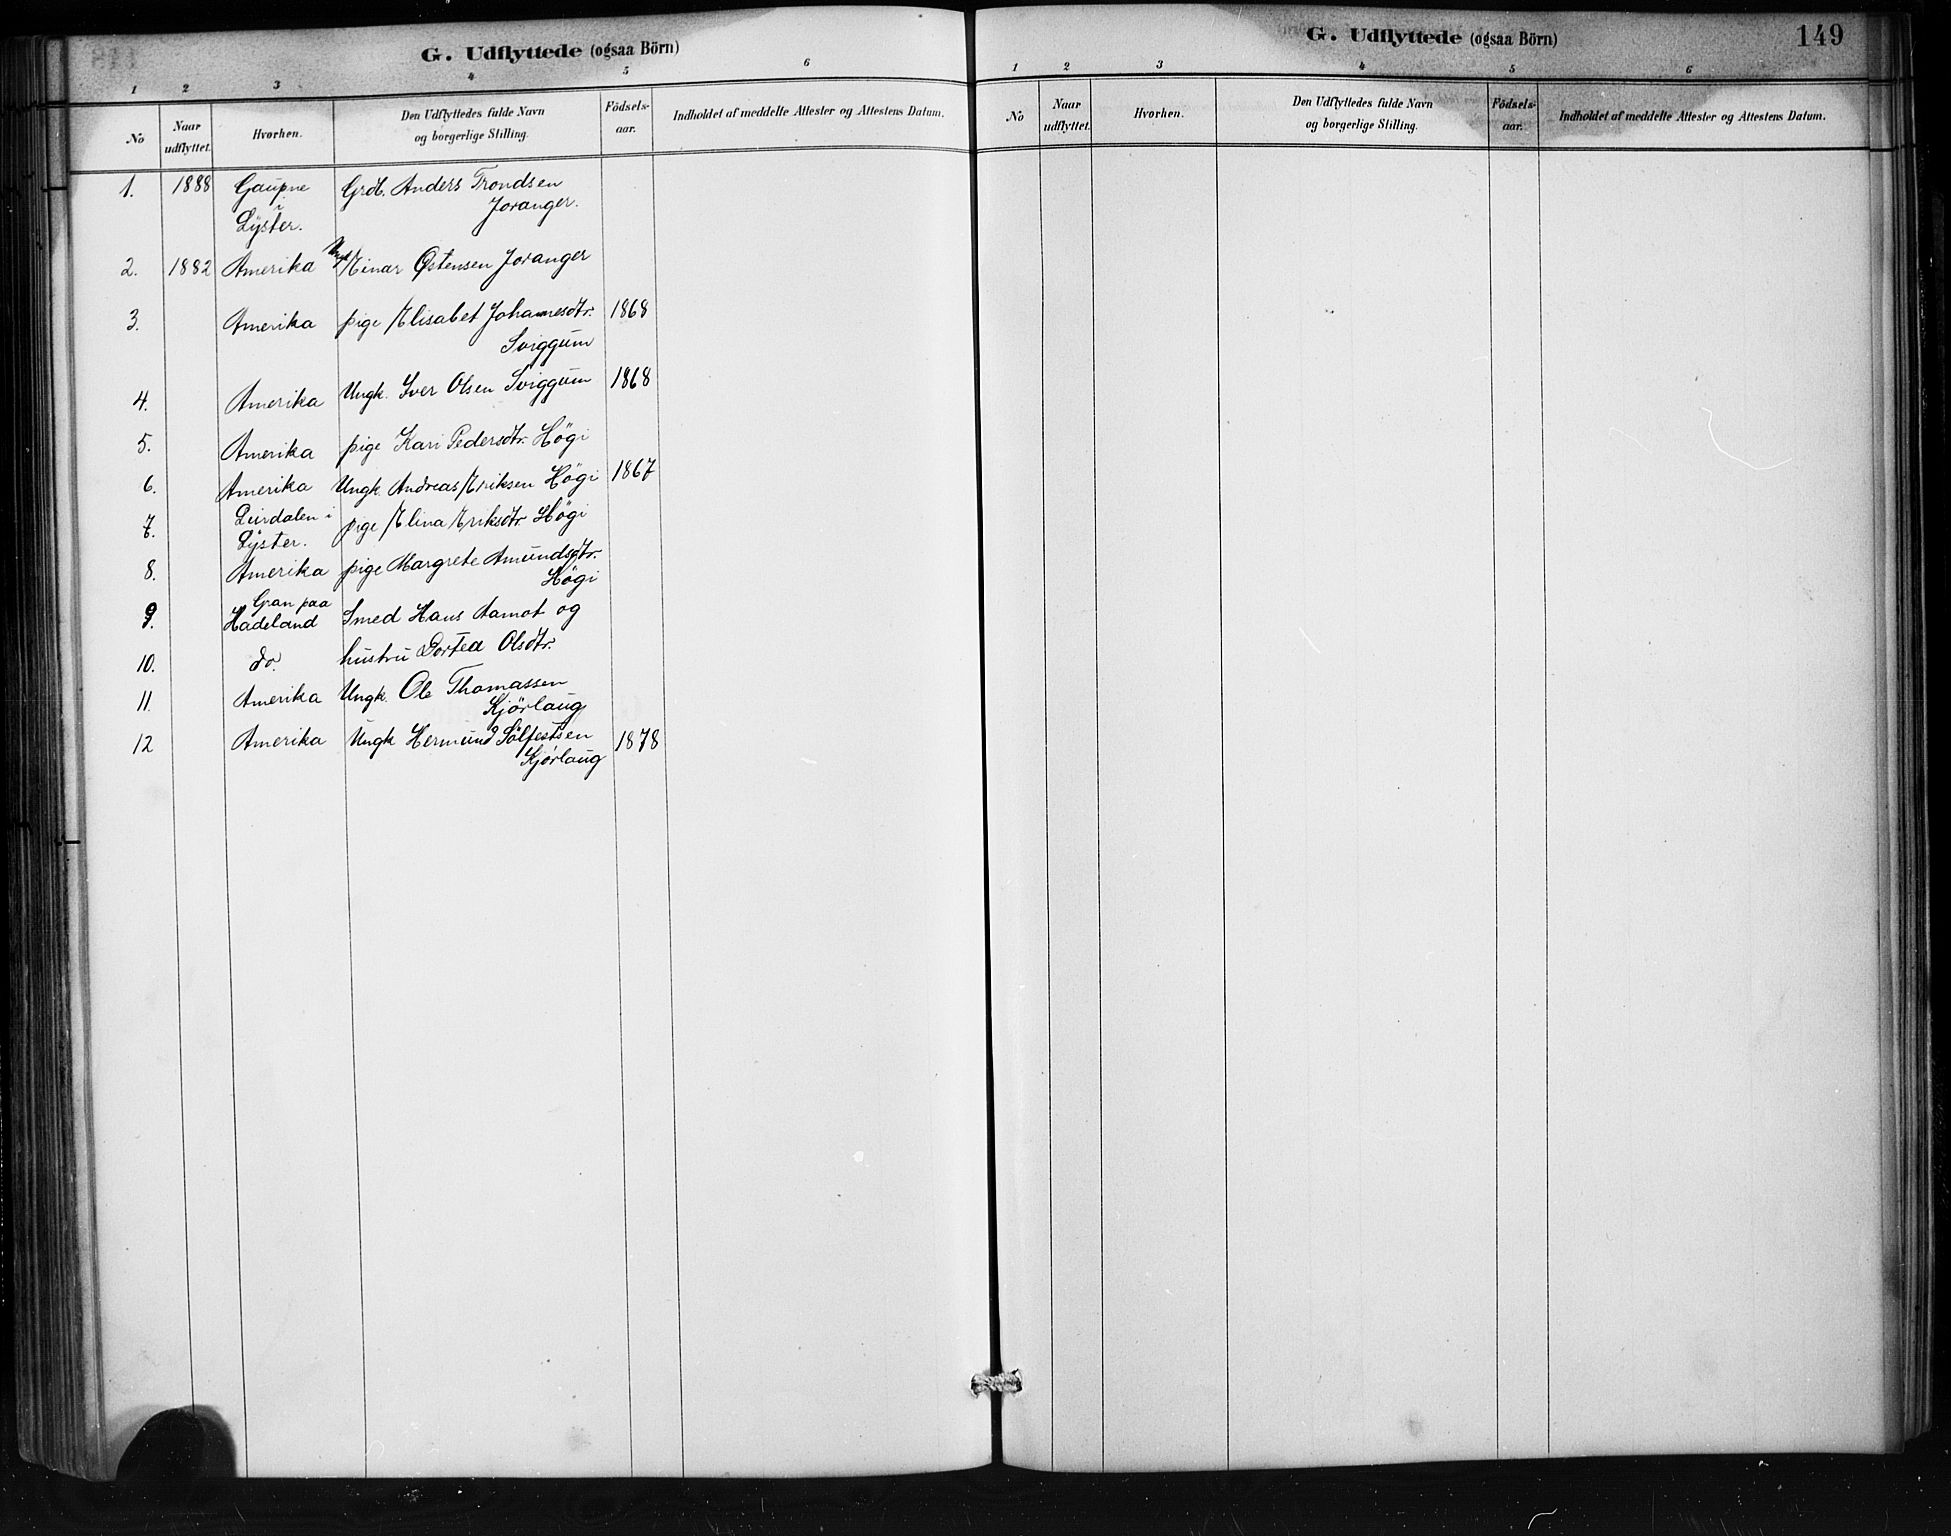 G. Udflyttede (ogsaa Börn)
1 2 3 4 5 6
No Naar udflyttet. Hvorhen. Den Udflyttedes fulde Navn og borgerlige Stilling. Födsels-aar. Indholdet af meddelte Attester og Attestens Datum.
1. 1888 Gaupne Grdb. Anders Trondsen
i Joranger.
Lÿster.
2. 1882 Amerika Ungk Einar Østensen Joranger
3. Amerika pige Elisabet Johannesdtr. 1868
Sviggum
4. Amerika Ungk. Iver Olsen Sviggum 1868
5. Amerika pige Kari Pedersdtr. Högi
6. Amerika Ungk. Andreas Eriksen Högi 1867
7. Leirdalen i pige Elina Eriksdtr. Högi
Lÿster.
8. Amerika pige Margrete Amundsdtr.
Högi
Gran paa
9. Hadeland Smed Hans Aamot og
10. do. hustru Dortea Olsdtr.
11. Amerika Ungk. Ole Thomassen
Kjörlaug
12 Amerika Ungk Hermund Sölfestsen 1878
Kjörlaug
G. Udflyttede (ogsaa Börn) 149
1 2 3 4 5 6
No Naar udflyttet. Hvorhen. Den Udflyttedes fulde Navn og borgerlige Stilling. Födsels-aar. Indholdet af meddelte Attester og Attestens Datum.